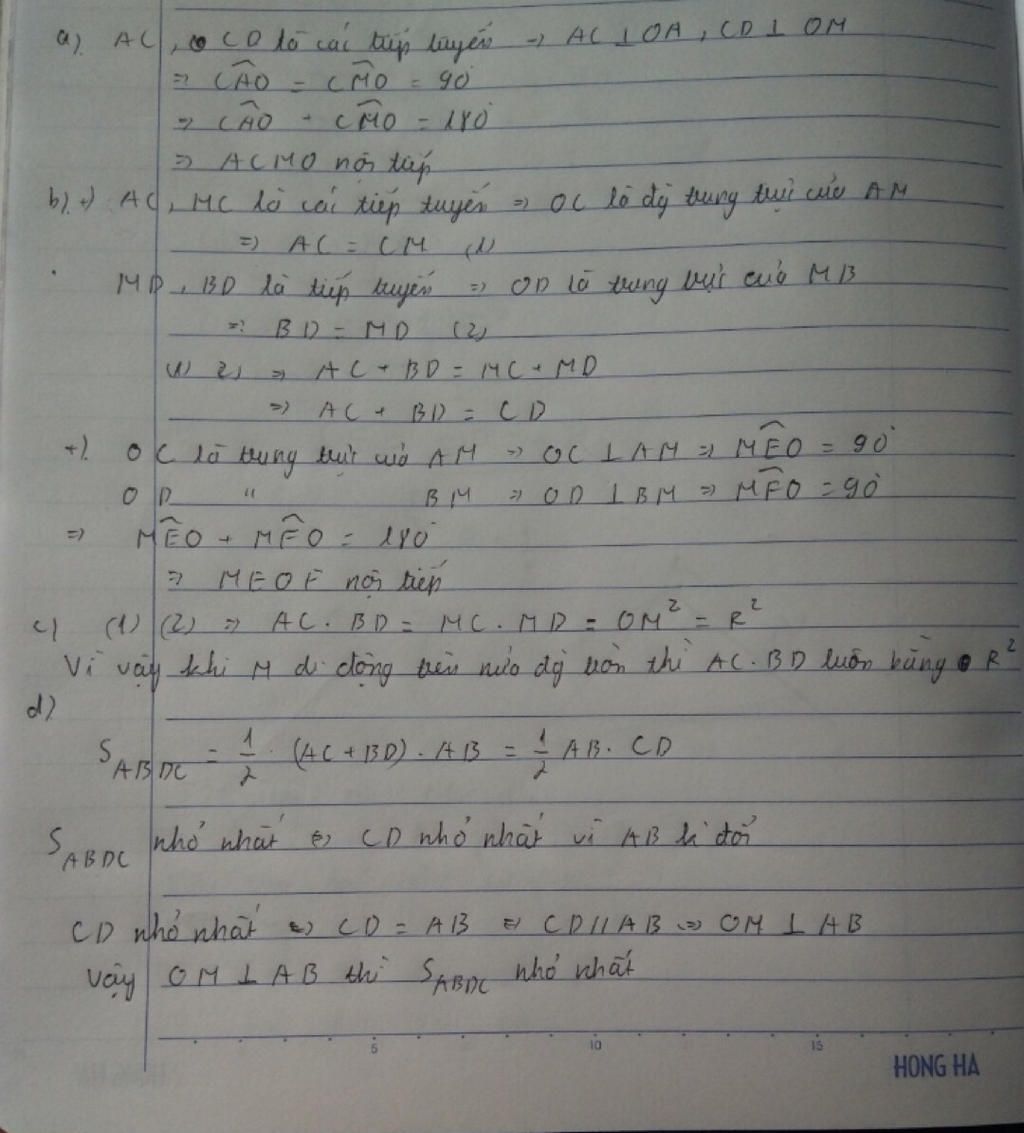 a) AC, CD là các tiếp tuyến → AC ⊥ OA, CD ⊥ OM
⇒ CÂO = CM̂O = 90°
⇒ CÂO + CM̂O = 180°
⇒ ACMO nội tiếp
b) +) AC, MC là các tiếp tuyến ⇒ OC là đg trung trực của AM
⇒ AC = CM (1)
MD, BD là tiếp tuyến ⇒ OD là trung trực của MB
⇒ BD = MD (2)
(1) (2) ⇒ AC + BD = MC + MD
⇒ AC + BD = CD
+) OC là trung trực của AM ⇒ OC ⊥ AM ⇒ MÊO = 90°
OD " BM ⇒ OD ⊥ BM ⇒ MF̂O = 90°
⇒ MÊO + MF̂O = 180°
⇒ MEOF nội tiếp
c) (1) (2) ⇒ AC . BD = MC . MD = OM² = R²
Vì vậy khi M di động trên nửa đg tròn thì AC . BD luôn bằng R²
d)
S_ABDC = 1/2 . (AC + BD) . AB = 1/2 AB . CD
S_ABDC nhỏ nhất ⇔ CD nhỏ nhất vì AB k đổi
CD nhỏ nhất ⇔ CD = AB ⇔ CD // AB ⇒ OM ⊥ AB
Vậy OM ⊥ AB thì S_ABDC nhỏ nhất
5 10 15
HONG HA